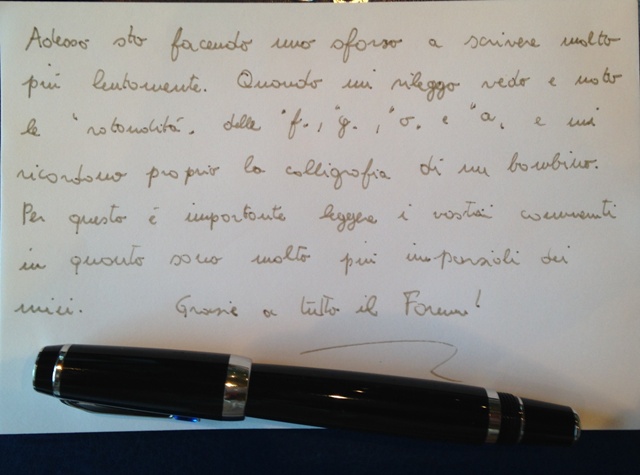 Adesso sto facendo uno sforzo a scrivere molto
più lentamente. Quando mi rileggo vedo e noto
le "rotondità" delle "f", "g", "o" e "a" e mi
ricordano proprio la calligrafia di un bambino.
Per questo è importante leggere i vostri commenti
in quanto sono molto più imparziali dei
miei. Grazie a tutto il Forum!